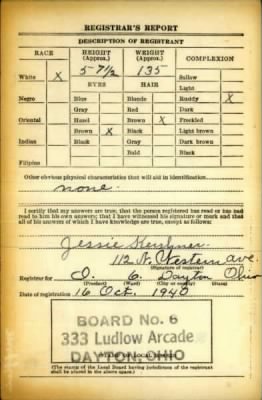 REGISTRAR'S REPORT
DESCRIPTION OF REGISTRANT
RACE HEIGHT (Approx.) WEIGHT (Approx.) COMPLEXION
5-7½ 135 Sallow
White X EYES HAIR Light
Negro Blue Blonde Ruddy X
Gray Red Dark
Oriental Hazel Brown X Freckled
Brown X Black Light brown
Indian Black Gray Dark brown
Bald Black
Filipino
Other obvious physical characteristics that will aid in identification
none.
I certify that my answers are true; that the person registered has read or has had
read to him his own answers; that I have witnessed his signature or mark and that
all of his answers of which I have knowledge are true, except as follows:
Jessie
112 N. Western ave.
(Signature of registrar)
Registrar for 6 Dayton Ohio
(Precinct) (Ward) (City or county) (State)
Date of registration 16 Oct. 1940
BOARD No. 6
333 Ludlow Arcade
DAYTON, OHIO
(STAMP OF LOCAL BOARD)
(The stamp of the Local Board having jurisdiction of the registrant
shall be placed in the above space.)